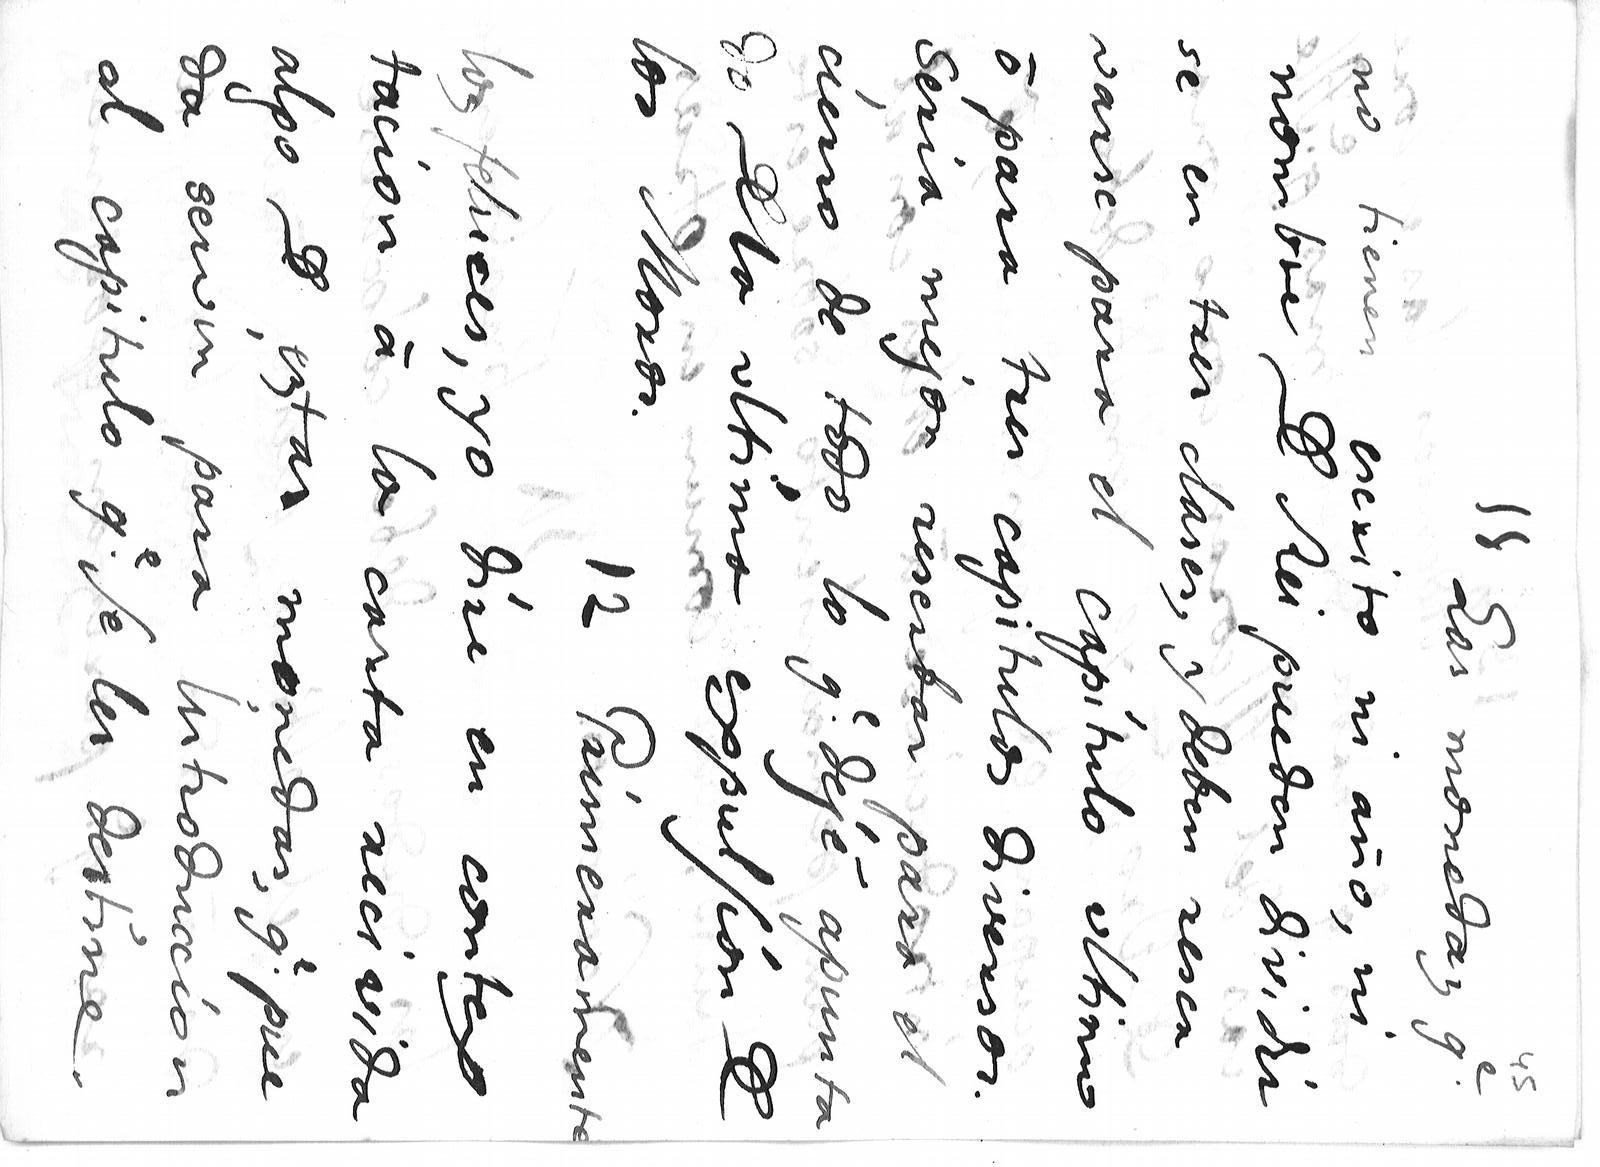 45
11 Las monedas q.e
no tienen escrito ni año, ni
nombre D Rei puedan dividir
se en tres clases, y deben reser
varse para el capítulo ultimo
ō para tres capitulos diversos.
Seria mejor reservar para el
cierro de todo lo q.e dejé apunta
do D la ultima expulsión D
los Moros.
12 Primeramente
los felices, yo dire en contes
tacion ā la carta recivida
algo D estas monedas, q.e pue
da servir para Introduccion
al capitulo q.e se les destine.